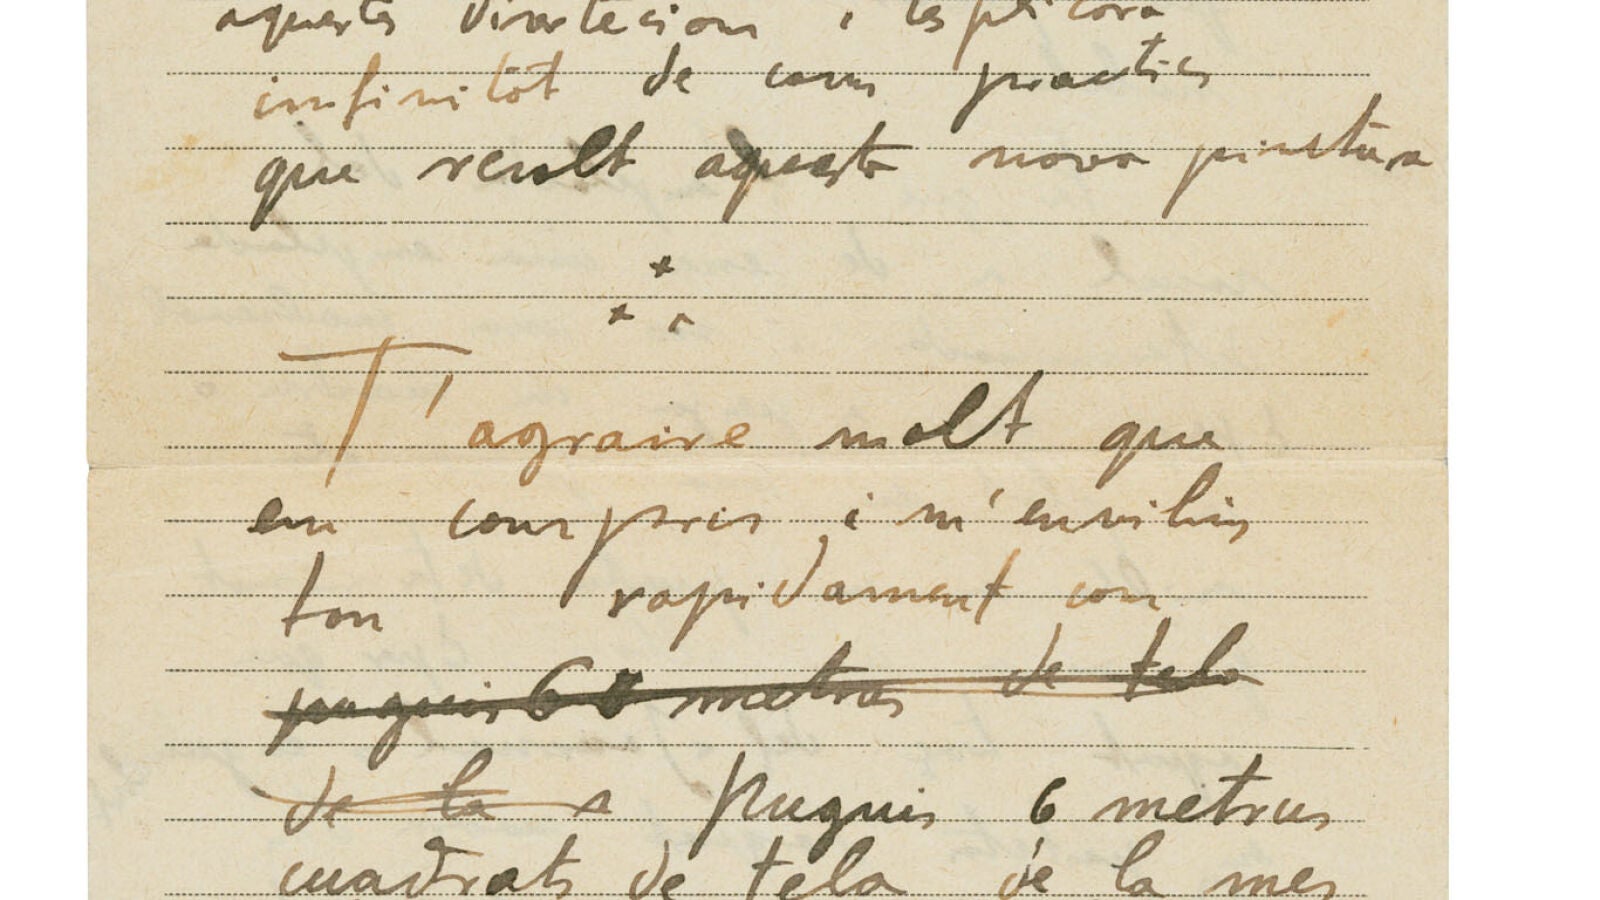 aquestes
infinitat de cams practics
que resolt aquesta nova pinctura
T'agraire molt que
em compris i m'enviliis
ton rapidament com
puguis 6 metres de tela
de la a puguis 6 metrus
cuadrats de tela de la mes